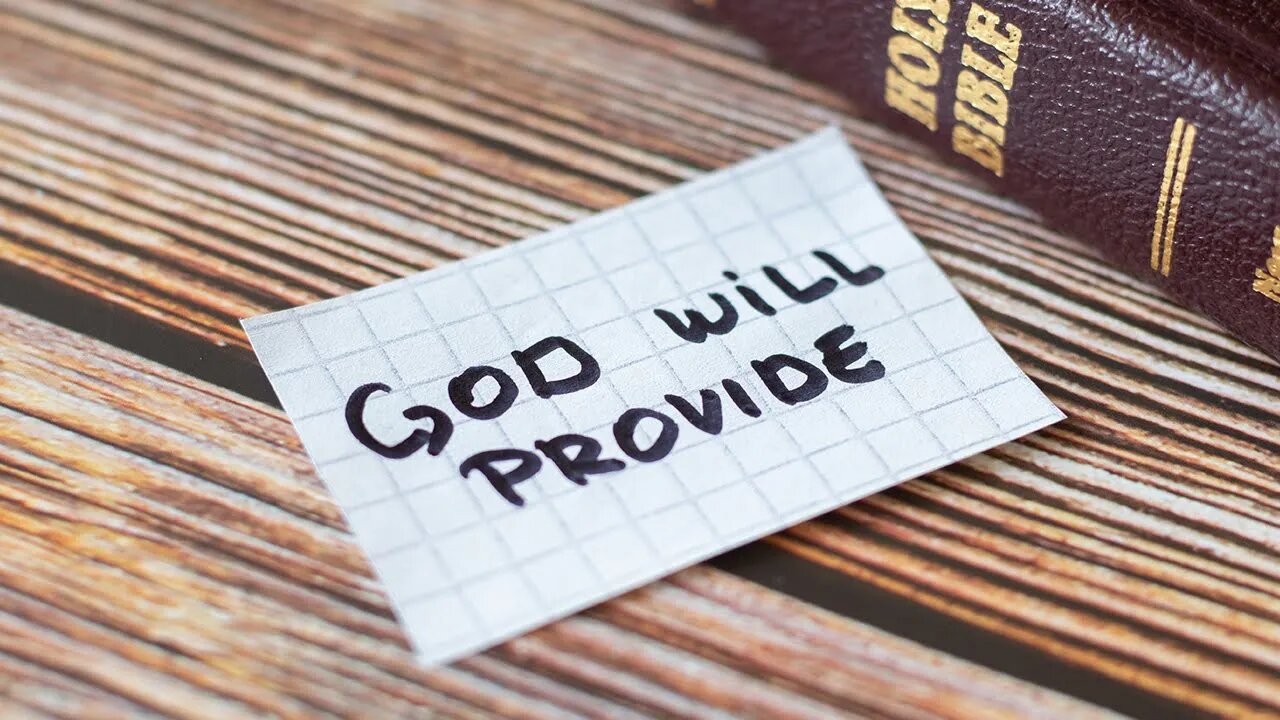 HOLY
BIBLE
GOD WILL
PROVIDE